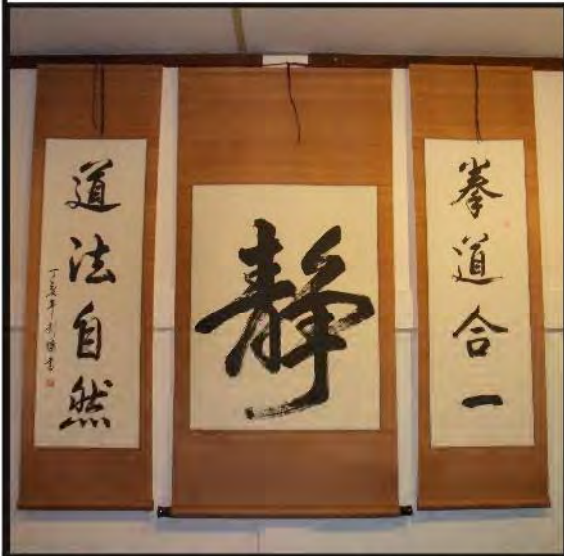 拳道合一
静
道法自然
丁亥年